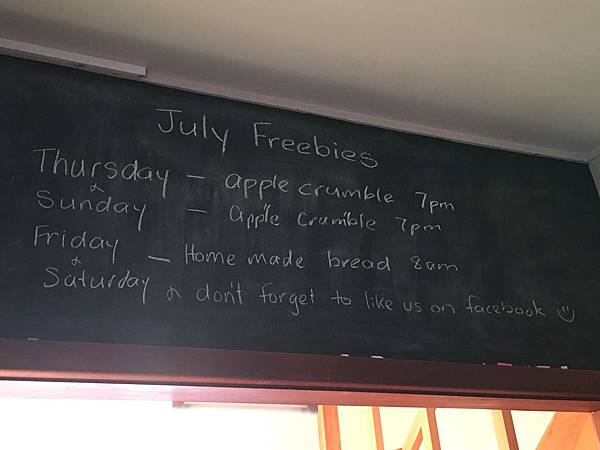 July Freebies
Thursday - apple crumble 7pm
&
Sunday - apple crumble 7pm
Friday - Home made bread 8am
&
Saturday & don't forget to like us on facebook